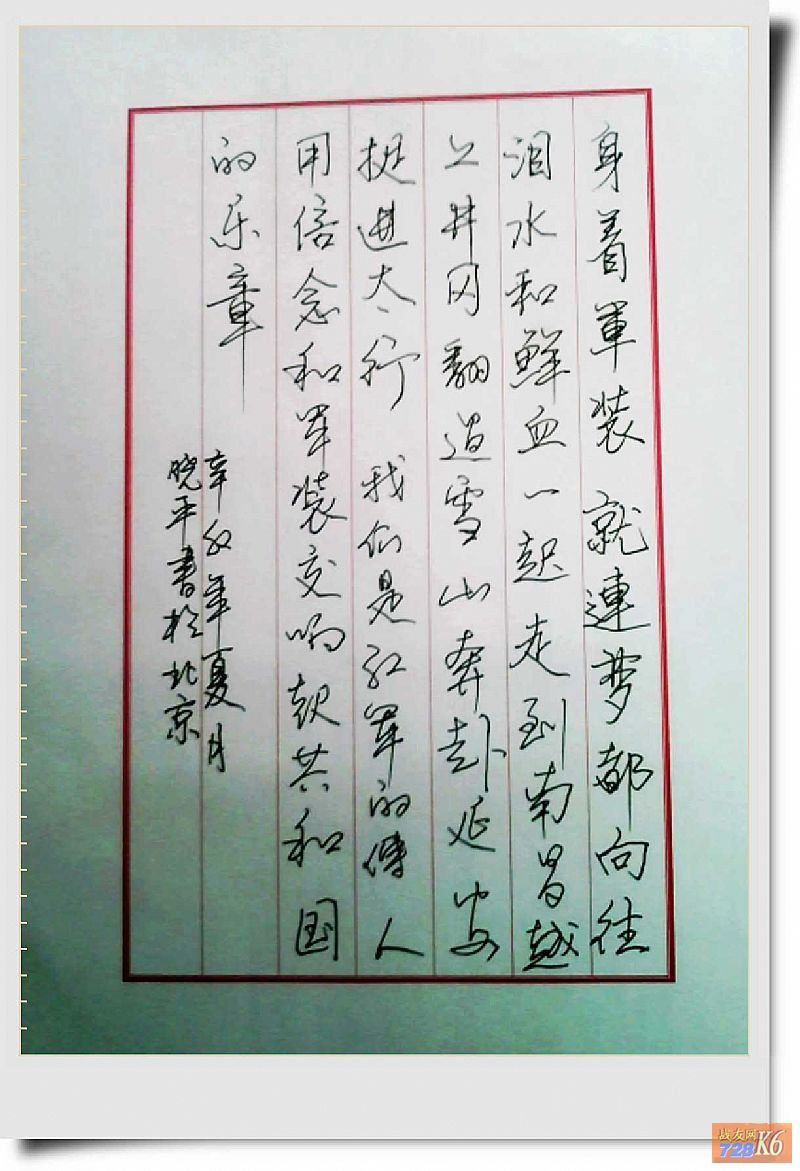 身着軍装 就連梦都向往
泪水和鮮血一起走到南昌越
上井冈翻過雪山奔赴延安
挺進太行 我们是红军的傳人
用信念和军装交响起共和国
的乐章
辛卯年夏月
晓平書於北京
战友网
728 K6